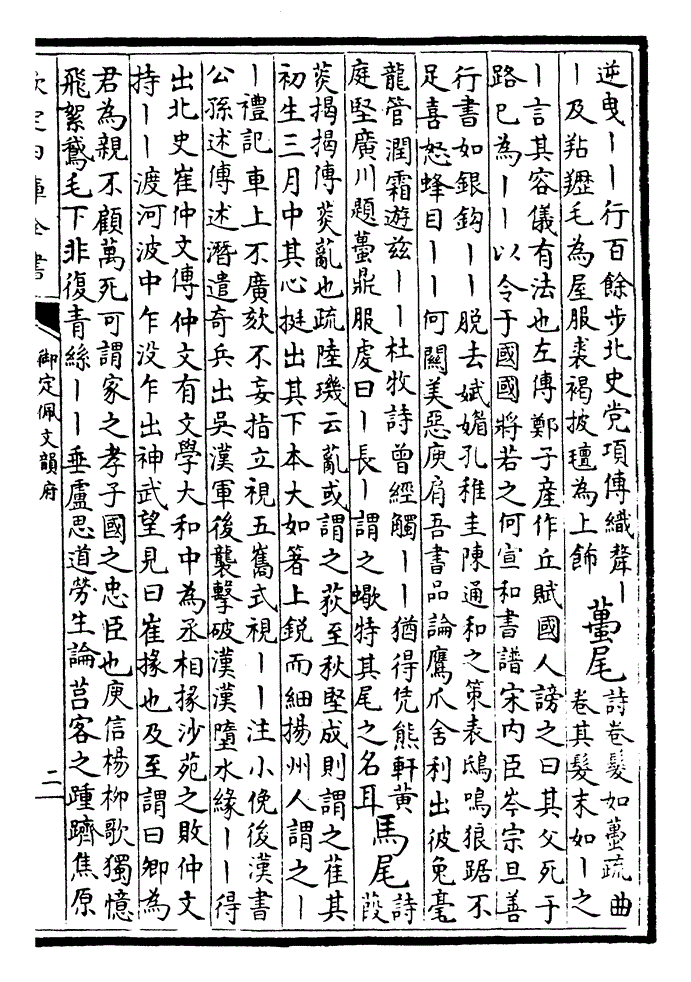 逆曳丨丨行百餘步北史党項傳織犛丨
丨及羖䍽毛為屋服裘褐披氊為上飾
蠆尾
詩卷髮如蠆疏曲
卷其髮末如丨之
丨言其容儀有法也左傳鄭子產作丘賦國人謗之曰其父死于
路已為丨丨以令于國國將若之何宣和書譜宋内臣岑宗旦善
行書如銀鈎丨丨脱去娬媚孔稚圭陳通和之策表鴟鳴狼踞不
足喜怒蜂目丨丨何關美惡庾肩吾書品論鷹爪舍利出彼兔毫
龍管潤霜遊兹丨丨杜牧詩曾經觸丨丨猶得凭熊軒黄
庭堅廣川題蠆鼎服虔曰丨長丨謂之蠍特其尾之名耳
馬尾
詩
葭
菼揭揭傳菼薍也疏陸璣云薍或謂之荻至秋堅成則謂之萑其
初生三月中其心挺出其下本大如箸上鋭而細揚州人謂之丨
丨禮記車上不廣欬不妄指立視五巂式視丨丨注小俛後漢書
公孫述傳述潛遣奇兵出吳漢軍後襲擊破漢漢墮水緣丨丨得
出北史崔仲文傳仲文有文學大和中為丞相掾沙苑之敗仲文
持丨丨渡河波中乍没乍出神武望見曰崔掾也及至謂曰卿為
君為親不顧萬死可謂家之孝子國之忠臣也庾信楊柳歌獨憶
飛絮鵞毛下非復青絲丨丨垂盧思道勞生論莒客之踵躋焦原
欽定四庫全書
御定佩文韻府
二